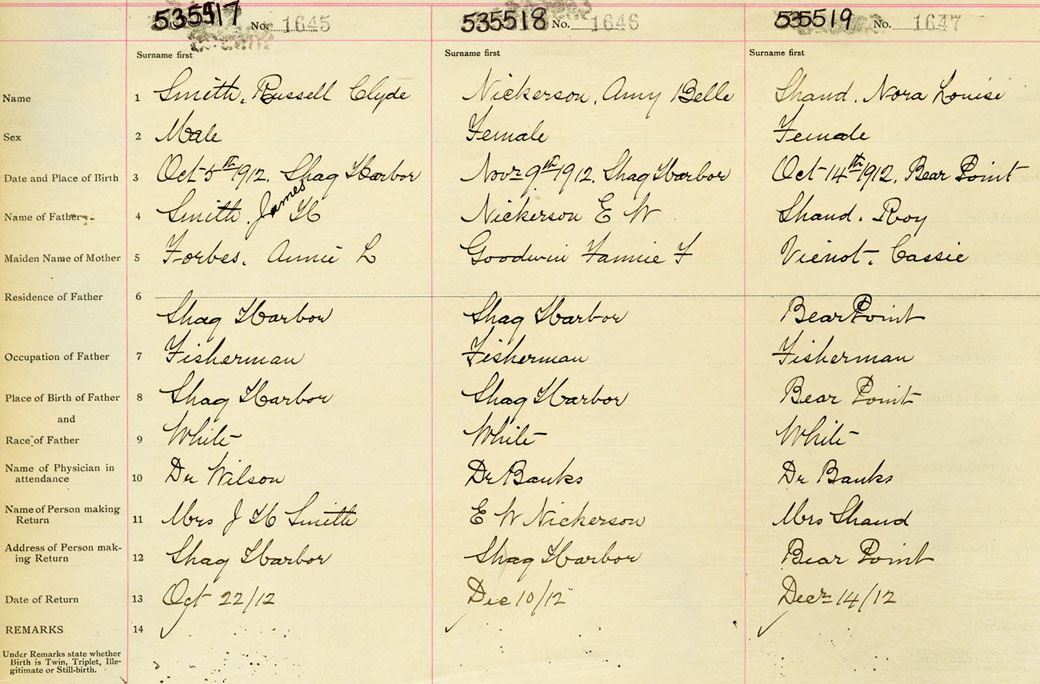 535517 No. 1645 535518 No. 1646 535519 No. 1647
Surname first Surname first Surname first
Name 1 Smith, Russell Clyde Nickerson, Amy Belle Shand, Nora Louise
Sex 2 Male Female Female
Date and Place of Birth 3 Oct 5th 1912, Shag Harbor Nov 9th 1912, Shag Harbor Oct 14th 1912, Bear Point
Name of Father 4 Smith, James H Nickerson E W Shand, Roy
Maiden Name of Mother 5 Forbes, Annie L Goodwin Fannie F Vienot, Cassie
Residence of Father 6 Shag Harbor Shag Harbor Bear Point
Occupation of Father 7 Fisherman Fisherman Fisherman
Place of Birth of Father 8 Shag Harbor Shag Harbor Bear Point
and
Race of Father 9 White White White
Name of Physician in
attendance 10 Dr Wilson Dr Banks Dr Banks
Name of Person making
Return 11 Mrs J H Smith E W Nickerson Mrs Shand
Address of Person mak-
ing Return 12 Shag Harbor Shag Harbor Bear Point
Date of Return 13 Oct 22/12 Dec 10/12 Decr 14/12
REMARKS 14
Under Remarks state whether
Birth is Twin, Triplet, Ille-
gitimate or Still-birth.